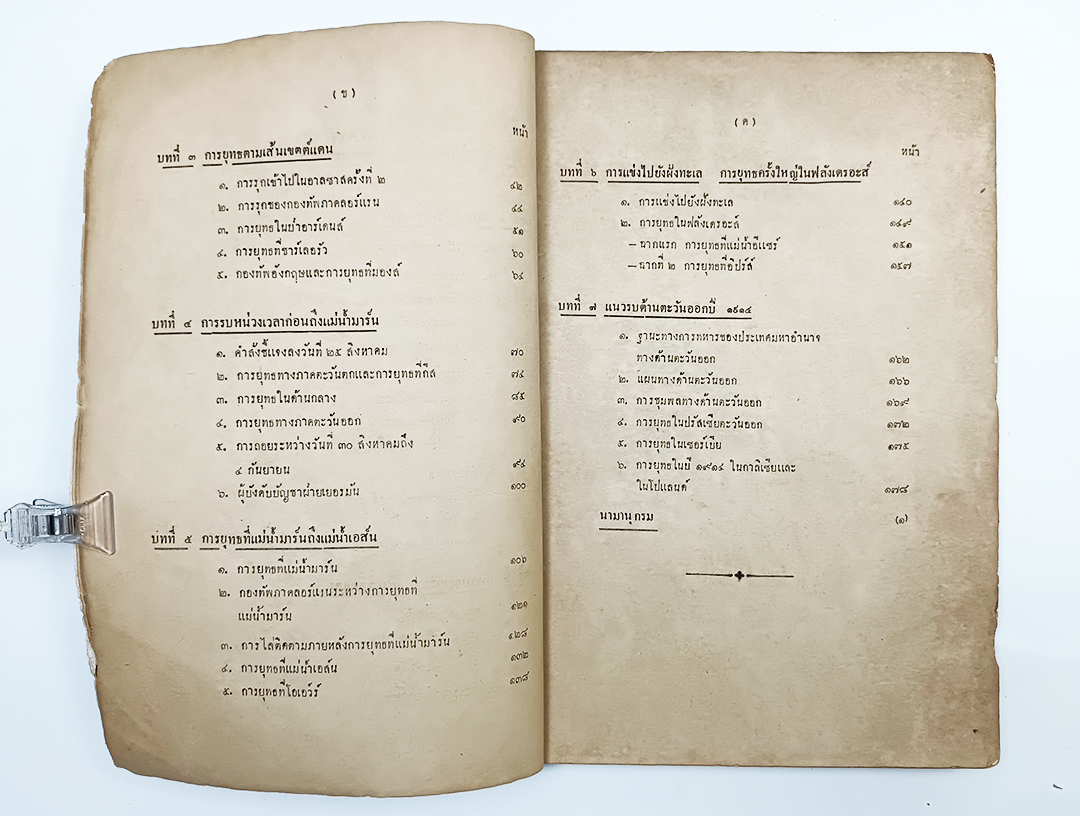 (ข)
หน้า
บทที่ ๓ การยุทธตามเส้นเขตต์แดน
๑. การรุกเข้าไปในอาลซาสครั้งที่ ๒ ๔๒
๒. การรุกของกองทัพภาคลอร์แรน ๔๔
๓. การยุทธในป่าอาร์เดนส์ ๕๑
๔. การยุทธที่ชาร์เลอรัว ๖๐
๕. กองทัพอังกฤษและการยุทธที่มองส์ ๖๔
บทที่ ๔ การรบหน่วงเวลาก่อนถึงแม่น้ำมาร์น
๑. คำสั่งชี้แจงลงวันที่ ๒๕ สิงหาคม ๗๐
๒. การยุทธทางภาคตะวันตกและการยุทธที่กีส ๗๔
๓. การยุทธในด้านกลาง ๘๕
๔. การยุทธทางภาคตะวันออก ๙๐
๕. การถอยระหว่างวันที่ ๓๐ สิงหาคมถึง
๔ กันยายน ๙๔
๖. ผู้บังคับบัญชาฝ่ายเยอรมัน ๑๐๐
บทที่ ๕ การยุทธที่แม่น้ำมาร์นถึงแม่น้ำเอส์น
๑. การยุทธที่แม่น้ำมาร์น ๑๐๖
๒. กองทัพภาคลอร์แรนระหว่างการยุทธที่
แม่น้ำมาร์น ๑๒๑
๓. การไล่ติดตามภายหลังการยุทธที่แม่น้ำมาร์น ๑๒๘
๔. การยุทธที่แม่น้ำเอส์น ๑๓๒
๕. การยุทธที่โอเอว์ร์ ๑๓๘
(ค)
หน้า
บทที่ ๖ การแข่งไปยังฝั่งทะเล การยุทธครั้งใหญ่ในฟลังเดรอะส์
๑. การแข่งไปยังฝั่งทะเล ๑๔๐
๒. การยุทธในฟลังเดรอะส์ ๑๔๙
—ฉากแรก การยุทธที่แม่น้ำอีแซร์ ๑๕๑
—ฉากที่ ๒ การยุทธที่อิปร์ส์ ๑๕๗
บทที่ ๗ แนวรบด้านตะวันออกปี ๑๙๑๔
๑. ฐานะทางการทหารของประเทศมหาอำนาจ
ทางด้านตะวันออก ๑๖๒
๒. แผนทางด้านตะวันออก ๑๖๖
๓. การชุมพลทางด้านตะวันออก ๑๖๙
๔. การยุทธในปรัสเซียตะวันออก ๑๗๒
๕. การยุทธในเซอร์เบีย ๑๗๕
๖. การยุทธในปี ๑๙๑๔ ในกาลิเซียและ
ในโปแลนด์ ๑๗๘
นามานุกรม (๑)